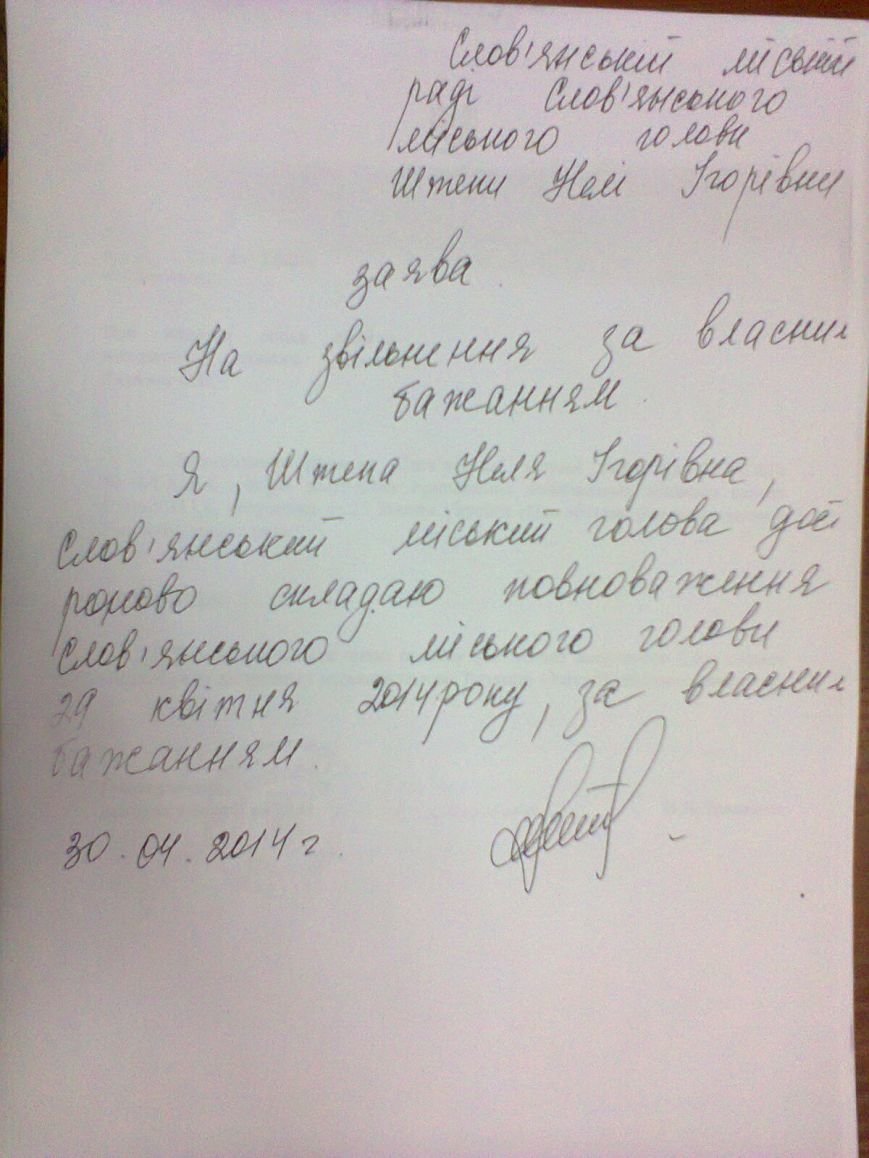 Слов'янській міській
раді Слов'янського
міського голови
Штепи Нелі Ігорівни
заява
На звільнення за власним
бажанням.
Я, Штепа Неля Ігорівна,
Слов'янський міський голова дост
роково складаю повноваження
Слов'янського міського голови
29 квітня 2014 року, за власним
бажанням.
30.04.2014 г.